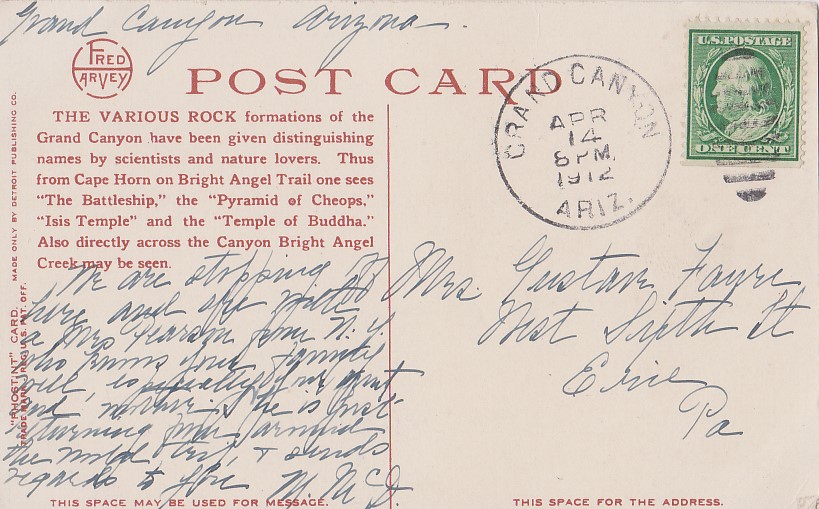 Grand Canyon Arizona.
FRED
HARVEY
POST CARD
GRAND CANYON
APR
14
8 PM
1912
ARIZ.
U.S. POSTAGE
ONE CENT
THE VARIOUS ROCK formations of the
Grand Canyon have been given distinguishing
names by scientists and nature lovers. Thus
from Cape Horn on Bright Angel Trail one sees
"The Battleship," the "Pyramid of Cheops,"
"Isis Temple" and the "Temple of Buddha."
Also directly across the Canyon Bright Angel
Creek may be seen.
"PHOSTINT" CARD. MADE ONLY BY DETROIT PUBLISHING CO.
TRADE MARK REG. U.S. PAT. OFF.
We are stopping
here and
a Mrs Pearson from N.Y.
who knows your family
well, especially your aunt
and mother, she is just
returning from around
the world trip, & sends
regards to you
M. McD.
Mrs. Gustav Favre
West Sixth St
Erie
Pa
THIS SPACE MAY BE USED FOR MESSAGE.
THIS SPACE FOR THE ADDRESS.